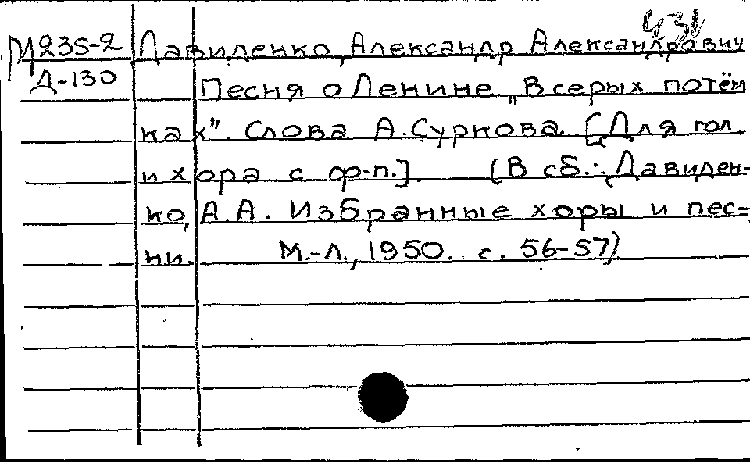 431
М235-2 Давиденко, Александр Александрович
Д-130 Песня о Ленине „В серых потём
ках". Слова А.Суркова. [Для гол.
и хора с ф-п.] (В сб.: Давиден-
ко, А.А. Избранные хоры и пес=
ни. М.-Л., 1950. с. 56-57)